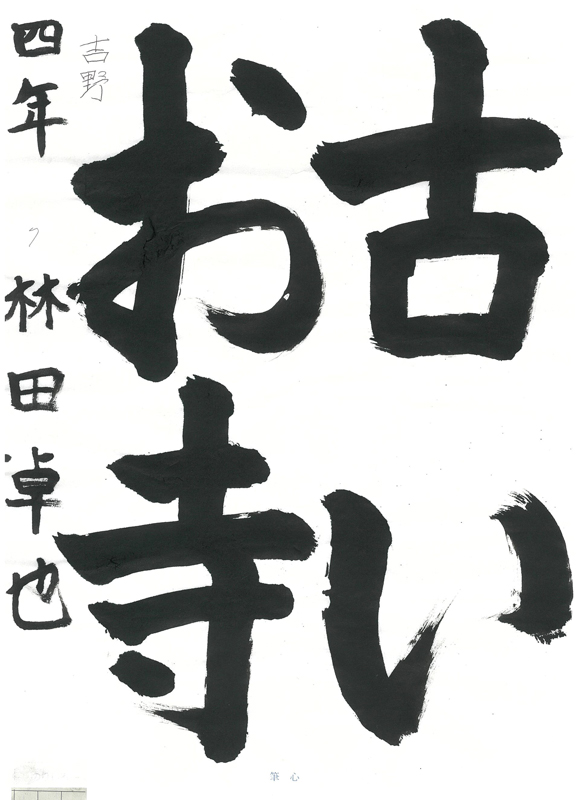 古い
お寺
吉野
四年 林田卓也
筆心